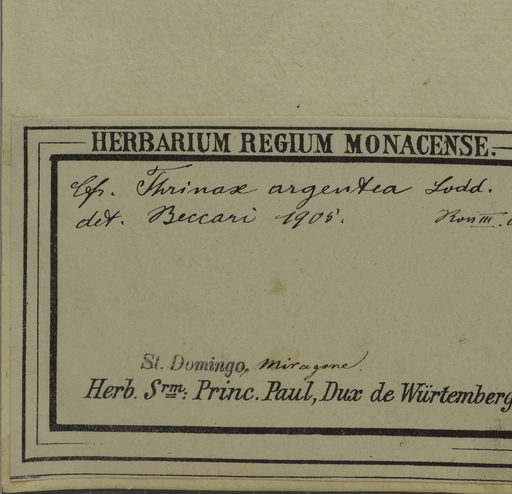 HERBARIUM REGIUM MONACENSE.
Cfr. Thrinax argentea Lodd.
det. Beccari 1905.
St. Domingo, Miragone.
Herb. Srm: Princ. Paul, Dux de Würtemberg